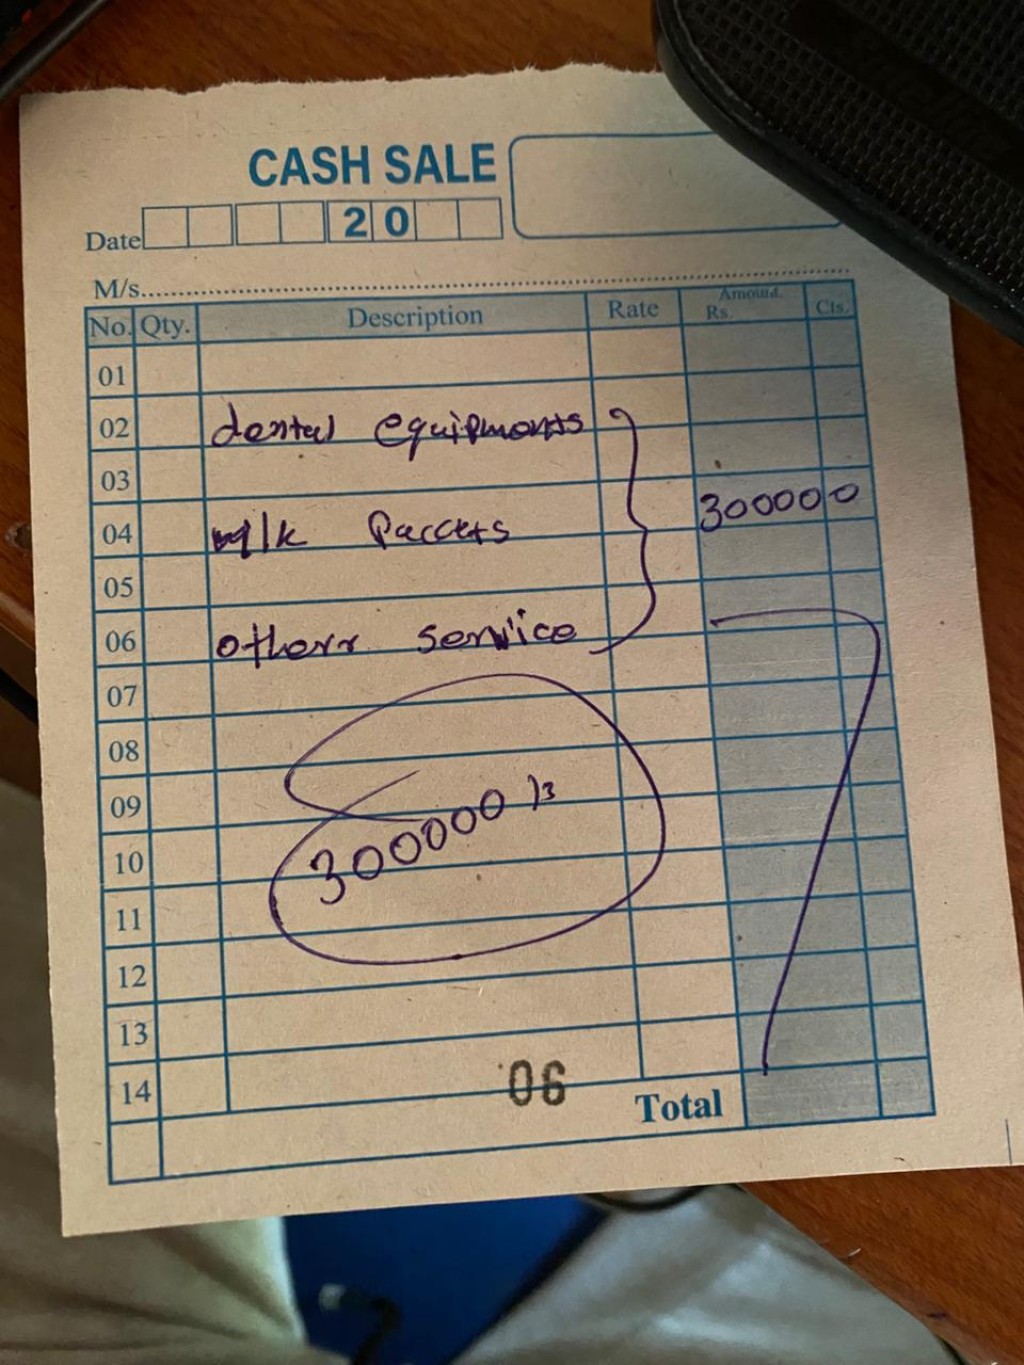 CASH SALE
Date 20
M/s
No. Qty. Description Rate Amount. Rs. Cts.
01
02 dental equipments
03
04 milk Paccets 300000
05
06 otherr service
07
08
09
10 300000
11
12
13
14
06
Total